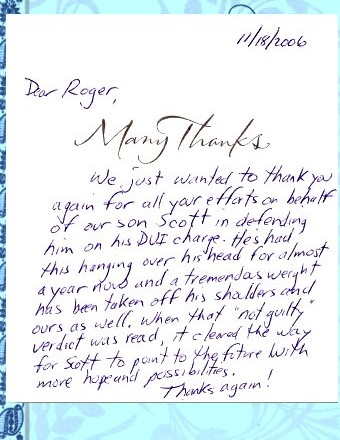 11/18/2006
Dear Roger,
Many Thanks
We just wanted to thank you
again for all your efforts on behalf
of our son Scott in defending
him on his DUI charge. He's had
this hanging over his head for almost
a year now and a tremendas weight
has been taken off his shoulders and
ours as well. When that "not guilty"
verdict was read, it cleared the way
for Scott to point to the future with
more hope and possibilities.
Thanks again!